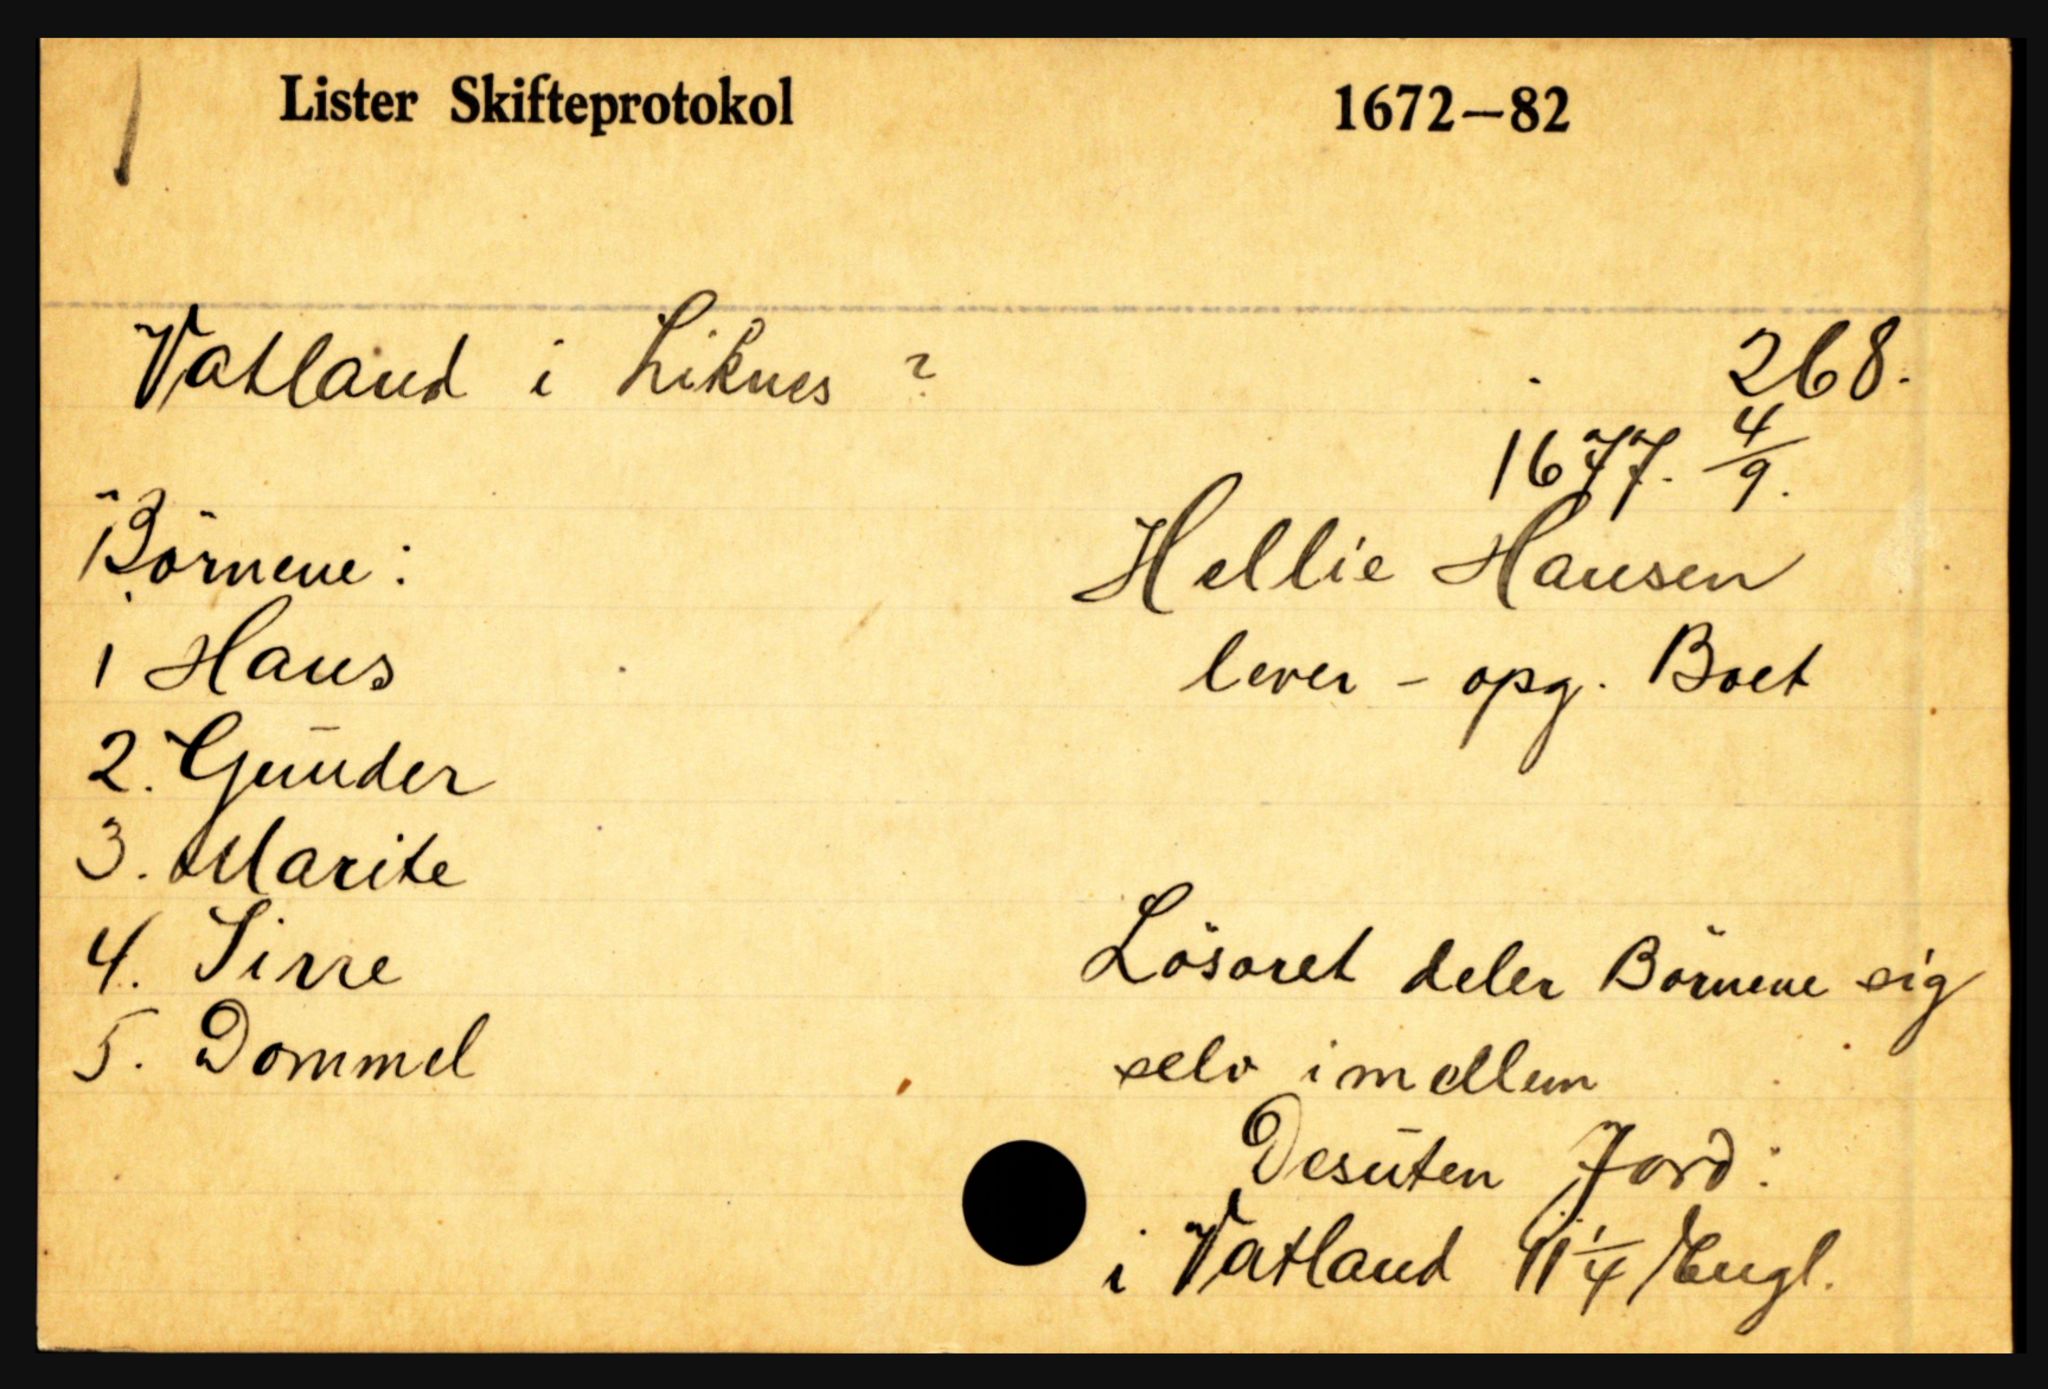 Lister Skifteprotokol 1672–82
Vatland i Liknes ? 268.
1677. 4/9.
Börnene:
Hellie Hansen
1 Hans
lever - opg. Boet
2. Gunder
3. Marite
4. Sirre
Lösöret deler Börnene sig
5. Dommel
selv imellem
Desuten Jord:
i Vatland 11 1/4 Engl.